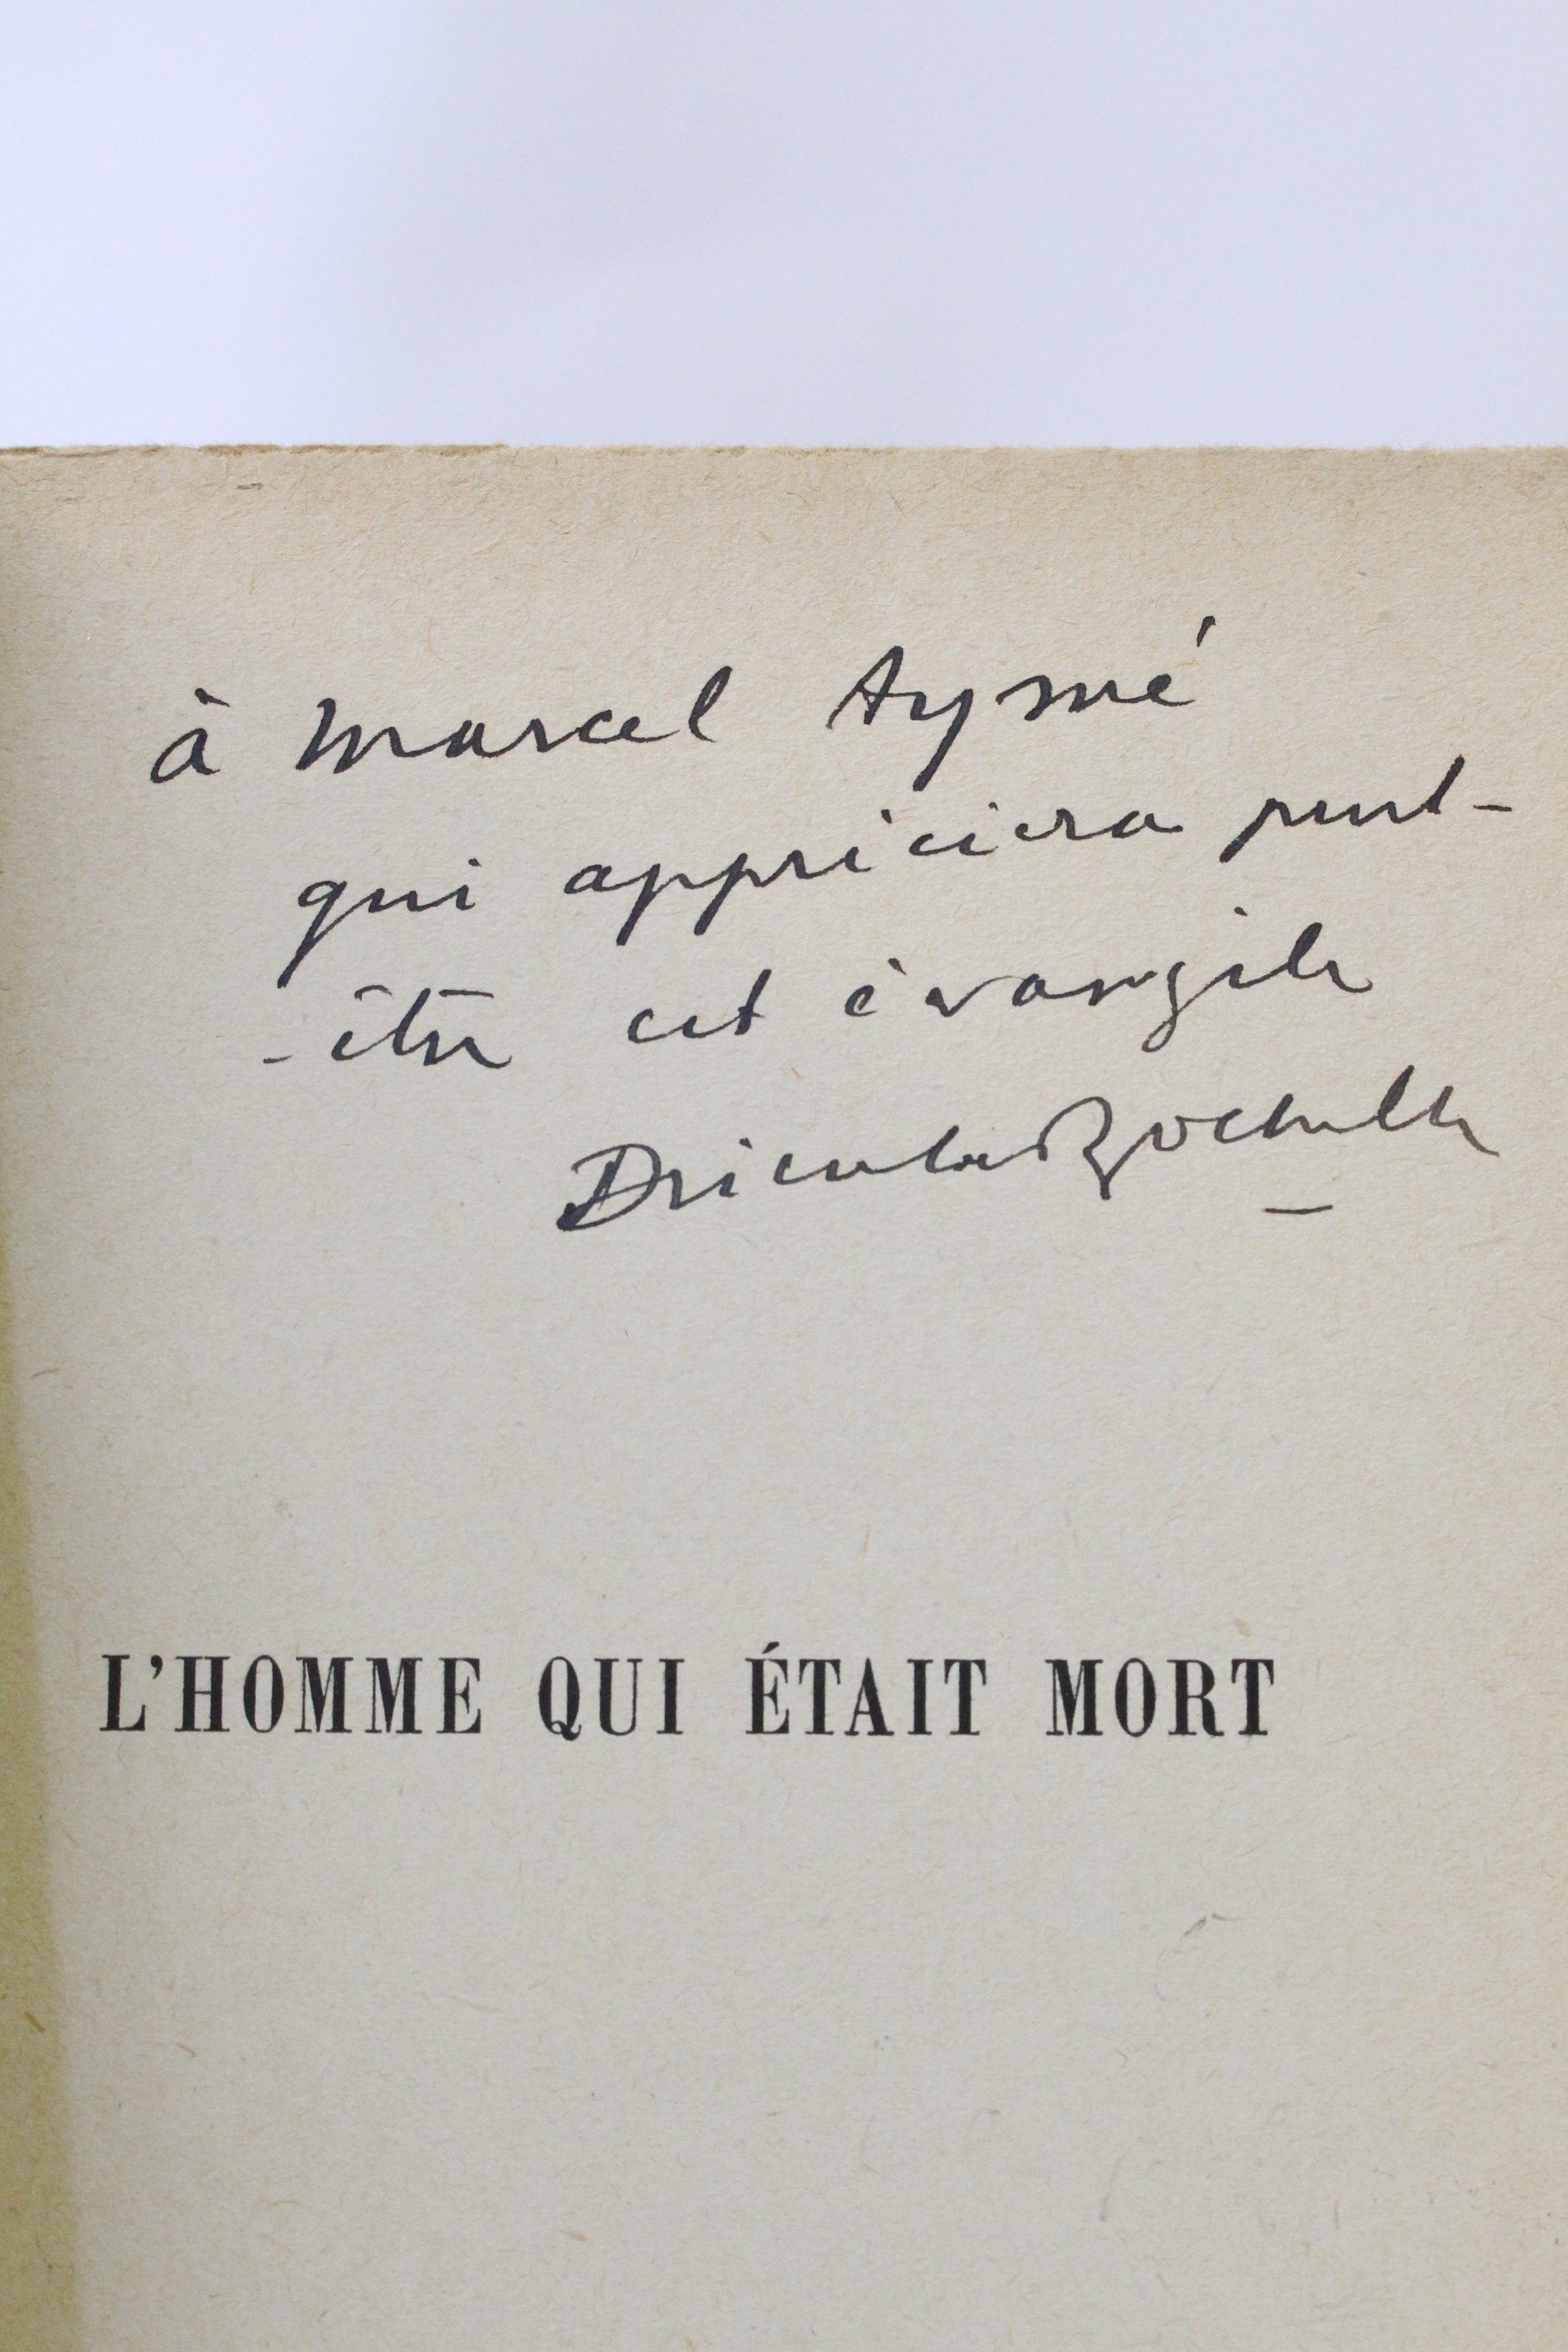 à Marcel Aymé
qui appréciera peut-
-être cet évangile
Drieu la Rochelle
L'HOMME QUI ÉTAIT MORT